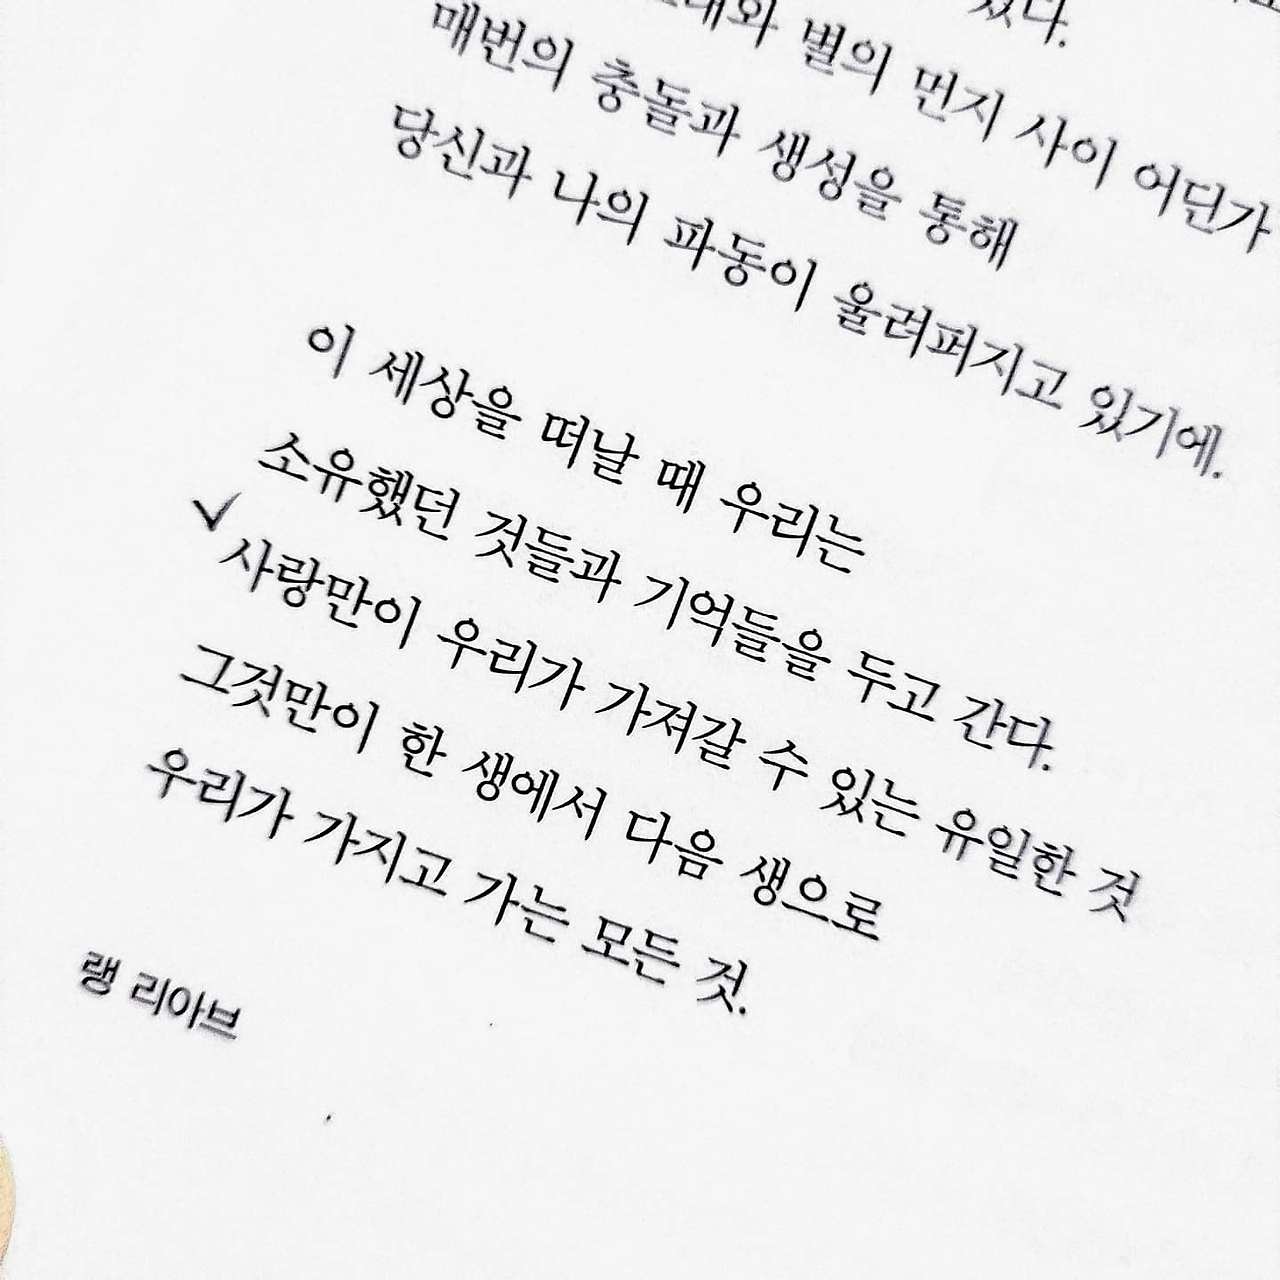 있다.
별의 먼지 사이 어딘가
매번의 충돌과 생성을 통해
당신과 나의 파동이 울려퍼지고 있기에.
이 세상을 떠날 때 우리는
소유했던 것들과 기억들을 두고 간다.
사랑만이 우리가 가져갈 수 있는 유일한 것
그것만이 한 생에서 다음 생으로
우리가 가지고 가는 모든 것.
랭 리아브